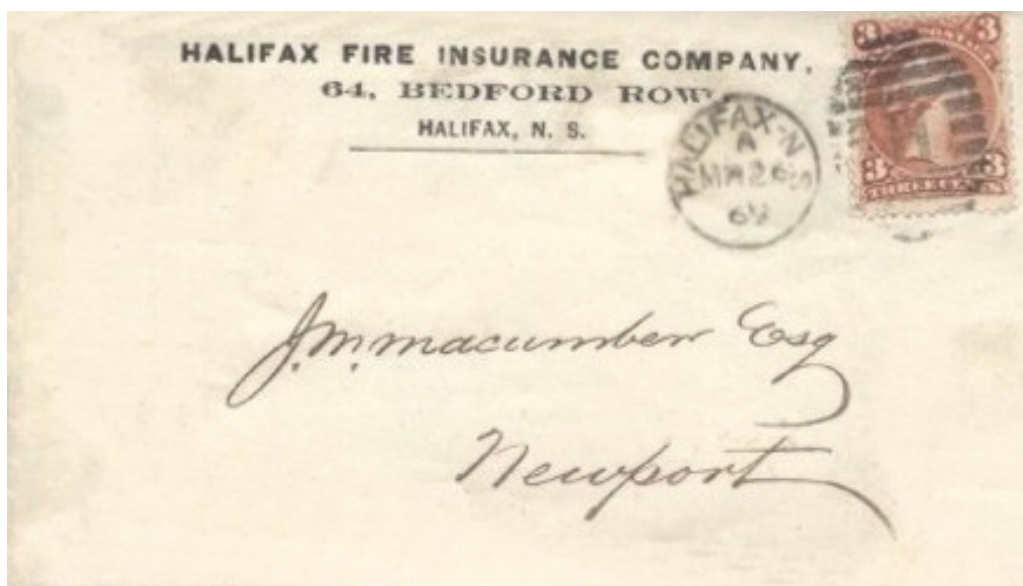 HALIFAX FIRE INSURANCE COMPANY,
64, BEDFORD ROW,
HALIFAX, N. S.
HALIFAX·N·S
A
MR 26
69
3 3
3 3
J. M. Macumber Esq
Newport